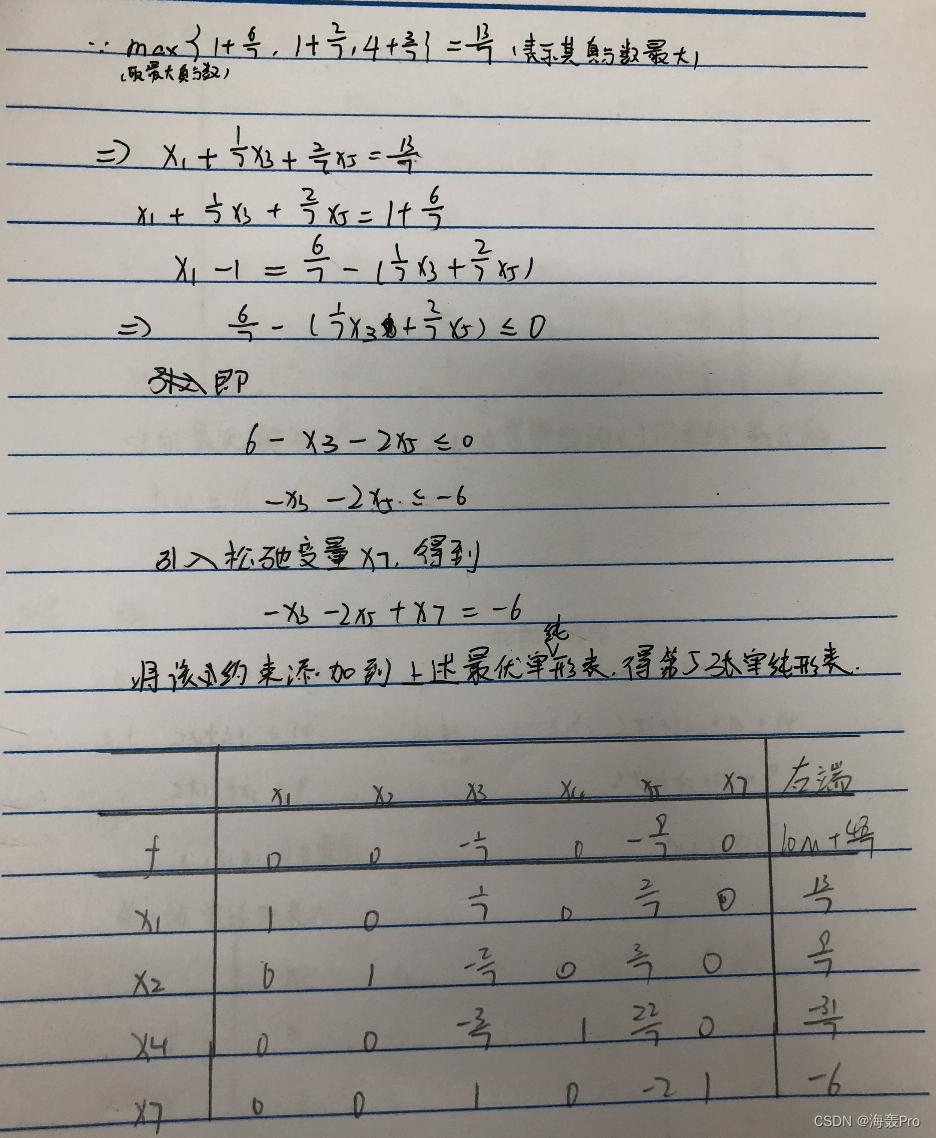 ∵ max{1+6/7, 1+2/7, 4+3/7} = 13/7 (表示其真分数最大)
(取最大真分数)
=> x1 + 1/7 x3 + 2/7 x5 = 13/7
x1 + 1/7 x3 + 2/7 x5 = 1 + 6/7
x1 - 1 = 6/7 - (1/7 x3 + 2/7 x5)
=> 6/7 - (1/7 x3 + 2/7 x5) ≤ 0
即
6 - x3 - 2x5 ≤ 0
-x3 - 2x5 ≤ -6
引入松弛变量x7, 得到
-x3 - 2x5 + x7 = -6
将该约束添加到上述最优单纯形表, 得第5张单纯形表.
x1 x2 x3 x4 x5 x7 右端
f 0 0 -1/7 0 -8/7 0
x1 1 0 1/7 0 2/7 0 13/7
x2 0 1 -2/7 0 3/7 0 9/7
x4 0 0 -3/7 1 22/7 0 -31/7
x7 0 0 1 0 -2 1 -6
CSDN @海轰Pro